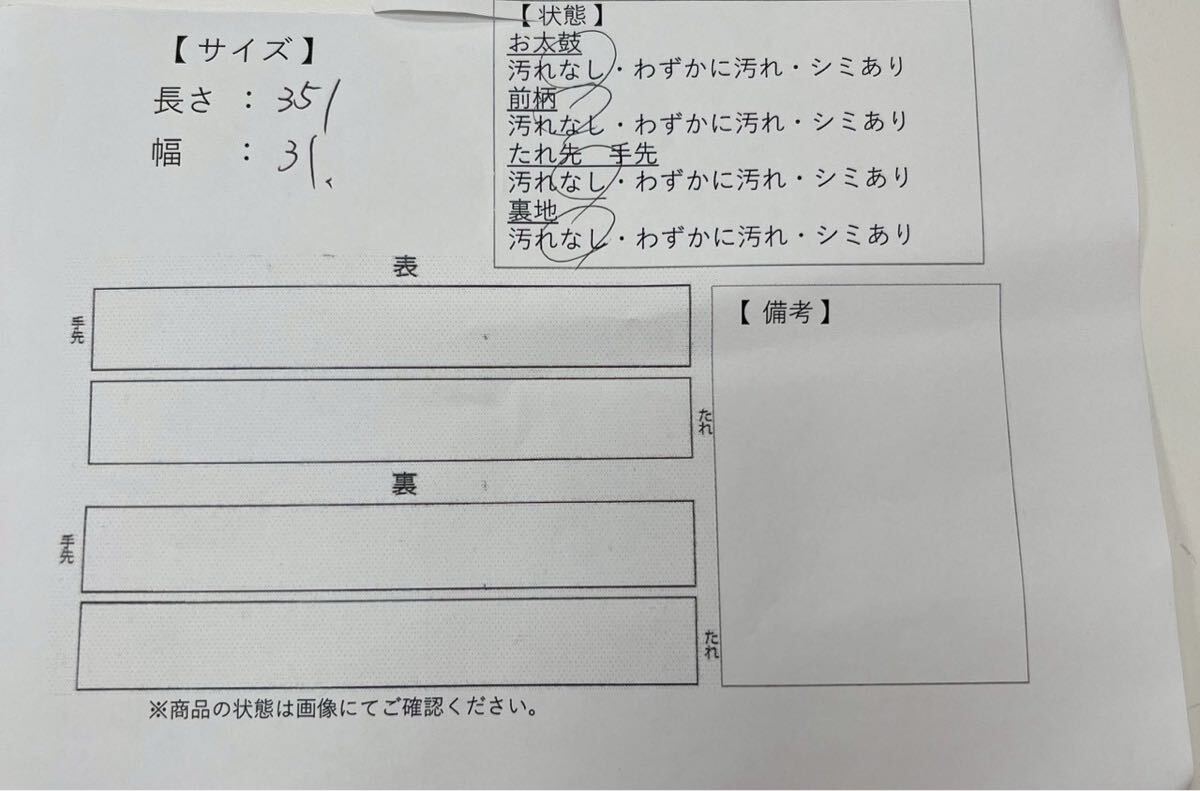 【 サイズ 】
長さ ： 351
幅 ： 31.
【 状態 】
お太鼓
汚れなし・わずかに汚れ・シミあり
前柄
汚れなし・わずかに汚れ・シミあり
たれ先 手先
汚れなし・わずかに汚れ・シミあり
裏地
汚れなし・わずかに汚れ・シミあり
表
手先
たれ
裏
手先
たれ
【 備考 】
※商品の状態は画像にてご確認ください。